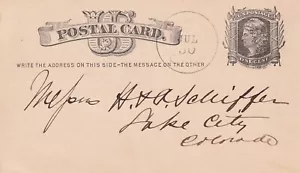 US
POSTAL CARD.
JUL
30
WRITE THE ADDRESS ON THIS SIDE-THE MESSAGE ON THE OTHER
ONE CENT
Messrs H. & A. Schiffer
Lake City
Colorado